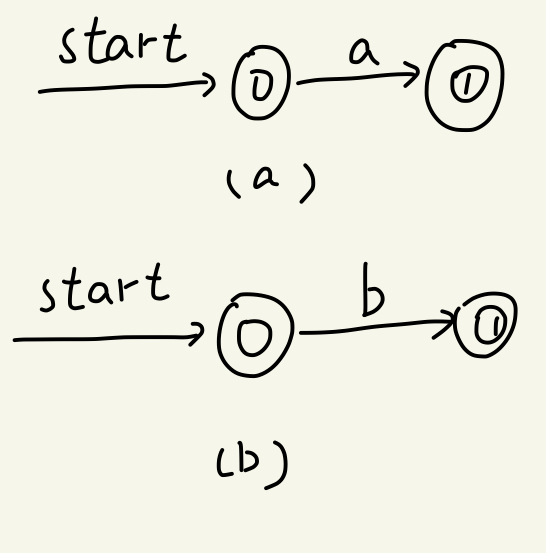 start 0 a 1
(a)
start 0 b 1
(b)